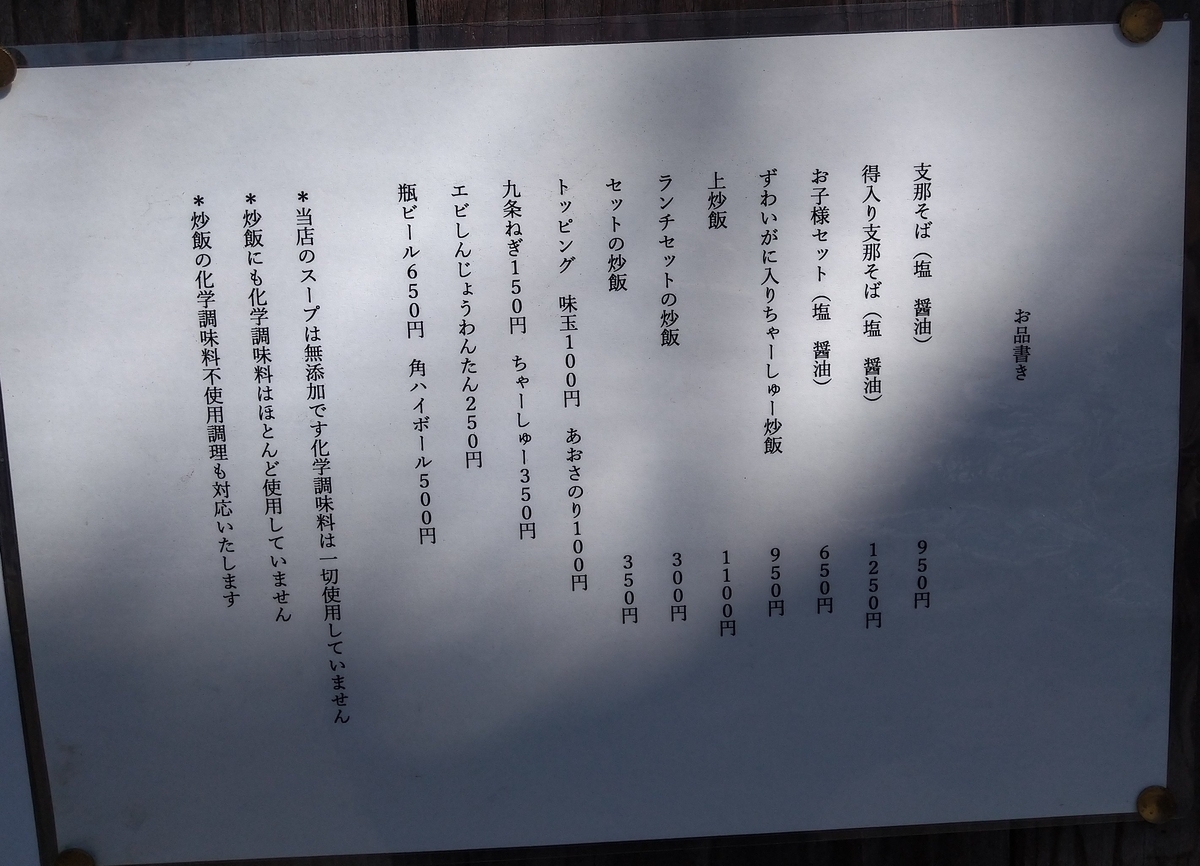 お品書き
支那そば（塩　醤油）　950円
得入り支那そば（塩　醤油）　1250円
お子様セット（塩　醤油）　650円
ずわいがに入りちゃーしゅー炒飯　950円
上炒飯　1100円
ランチセットの炒飯　300円
セットの炒飯　350円
トッピング　味玉100円　あおさのり100円
九条ねぎ150円　ちゃーしゅー350円
エビしんじょうわんたん250円
瓶ビール650円　角ハイボール500円
＊当店のスープは無添加です化学調味料は一切使用していません
＊炒飯にも化学調味料はほとんど使用していません
＊炒飯の化学調味料不使用調理も対応いたします